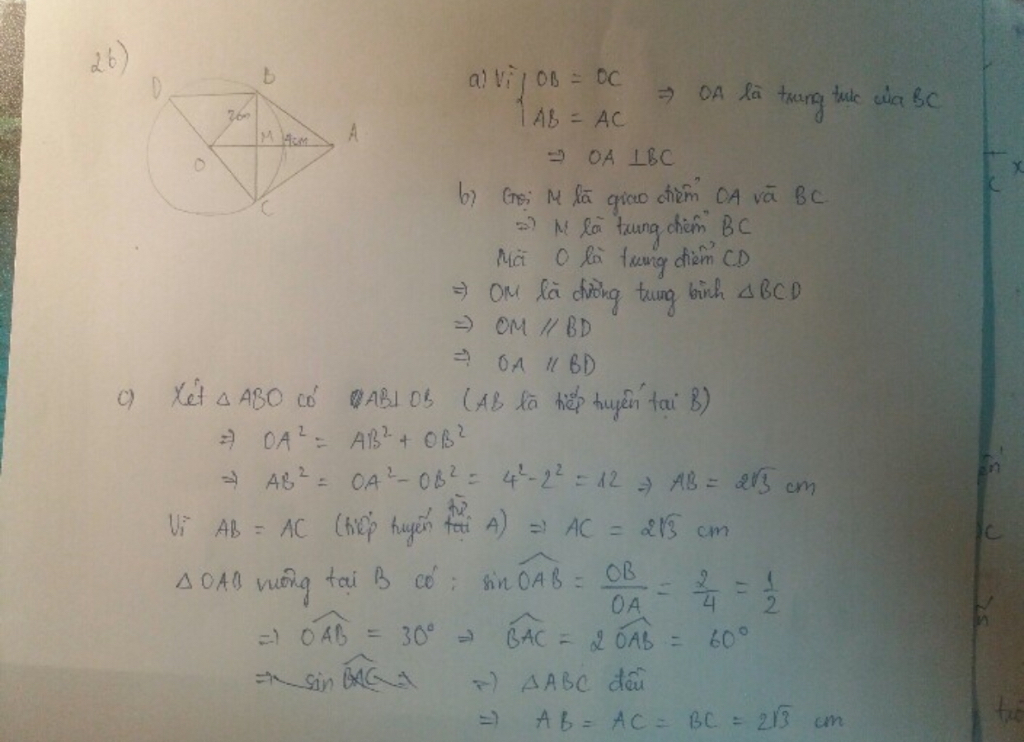 26)
D
B
2cm
M
4cm
A
O
C
a) Vì { OB = OC
AB = AC
⇒ OA là trung trực của BC
⇒ OA ⊥ BC
b) Gọi M là giao điểm OA và BC
⇒ M là trung điểm BC
Mà O là trung điểm CD
⇒ OM là đường trung bình △BCD
⇒ OM // BD
⇒ OA // BD
c) Xét △ABO có AB⊥OB (AB là tiếp tuyến tại B)
⇒ OA² = AB² + OB²
⇒ AB² = OA² - OB² = 4² - 2² = 12 ⇒ AB = 2√3 cm
Vì AB = AC (tiếp tuyến từ A) ⇒ AC = 2√3 cm
△OAB vuông tại B có : sin OAB = OB/OA = 2/4 = 1/2
⇒ OAB = 30° ⇒ BAC = 2 OAB = 60°
⇒ sin BAC ⇒ ⇒ △ABC đều
⇒ AB = AC = BC = 2√3 cm